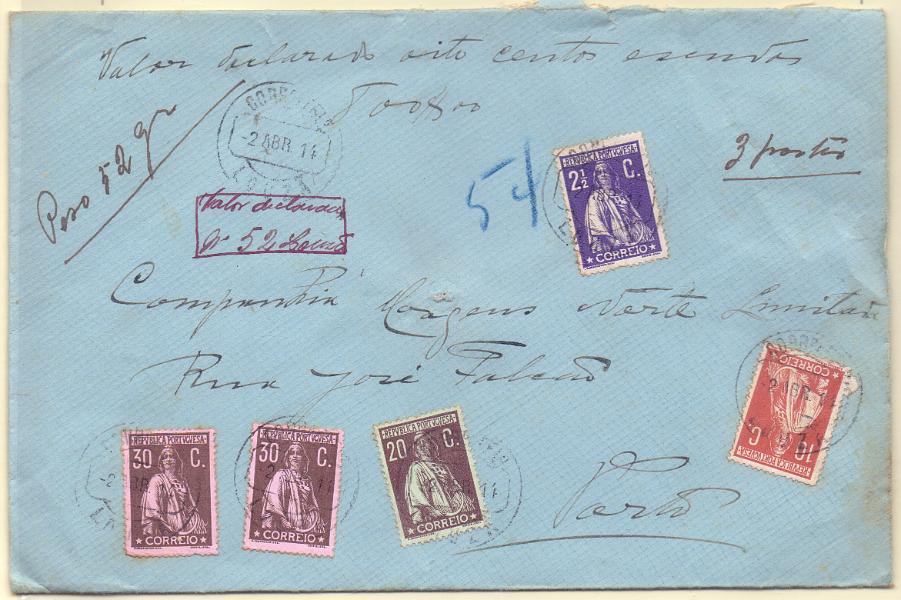 Valor declarado oito centos escudos
800$00
Peso 52 gr
3 portes
CORREIO
-2 ABR. 14
LOUZÃ
54
Valor declarado
Nº 52 Louzã
REPUBLICA PORTUGUESA
2½ C.
CORREIO
Companhia Moagens Norte Limitada
Rua José Falcão
CORREIO
-2 ABR. 14
REPUBLICA PORTUGUESA
10 C.
CORREIO
REPUBLICA PORTUGUESA
30 C.
CORREIO
REPUBLICA PORTUGUESA
30 C.
CORREIO
REPUBLICA PORTUGUESA
20 C.
CORREIO
Porto